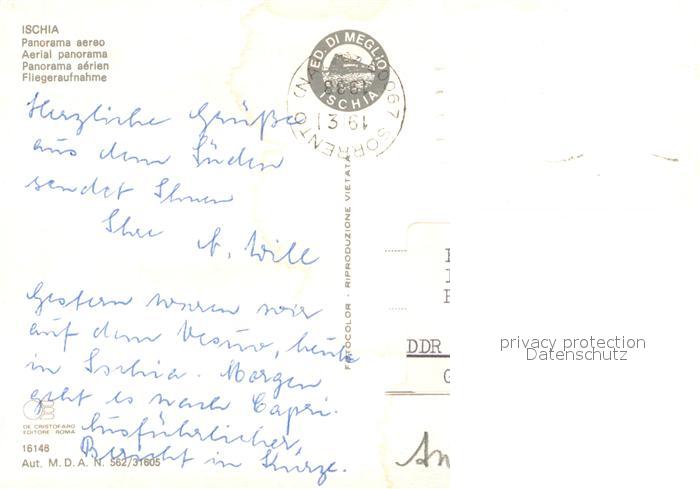 ISCHIA
Panorama aereo
Aerial panorama
Panorama aérien
Fliegeraufnahme
ED. DI MEGLIO
ISCHIA
80067 SORRENTO (NA)
19 3
Herzliche Grüße
aus dem Süden
sendet Ihnen
Ihre A. Will
Gestern waren wir
auf dem Vesuv, heute
in Ischia. Morgen
geht es nach Capri.
Ausführlicher
Bericht in Kürze.
DE CRISTOFARO
EDITORE ROMA
16148
Aut. M. D. A. N. 562/31605
FOTOCOLOR - RIPRODUZIONE VIETATA
DDR
G
An
privacy protection
Datenschutz